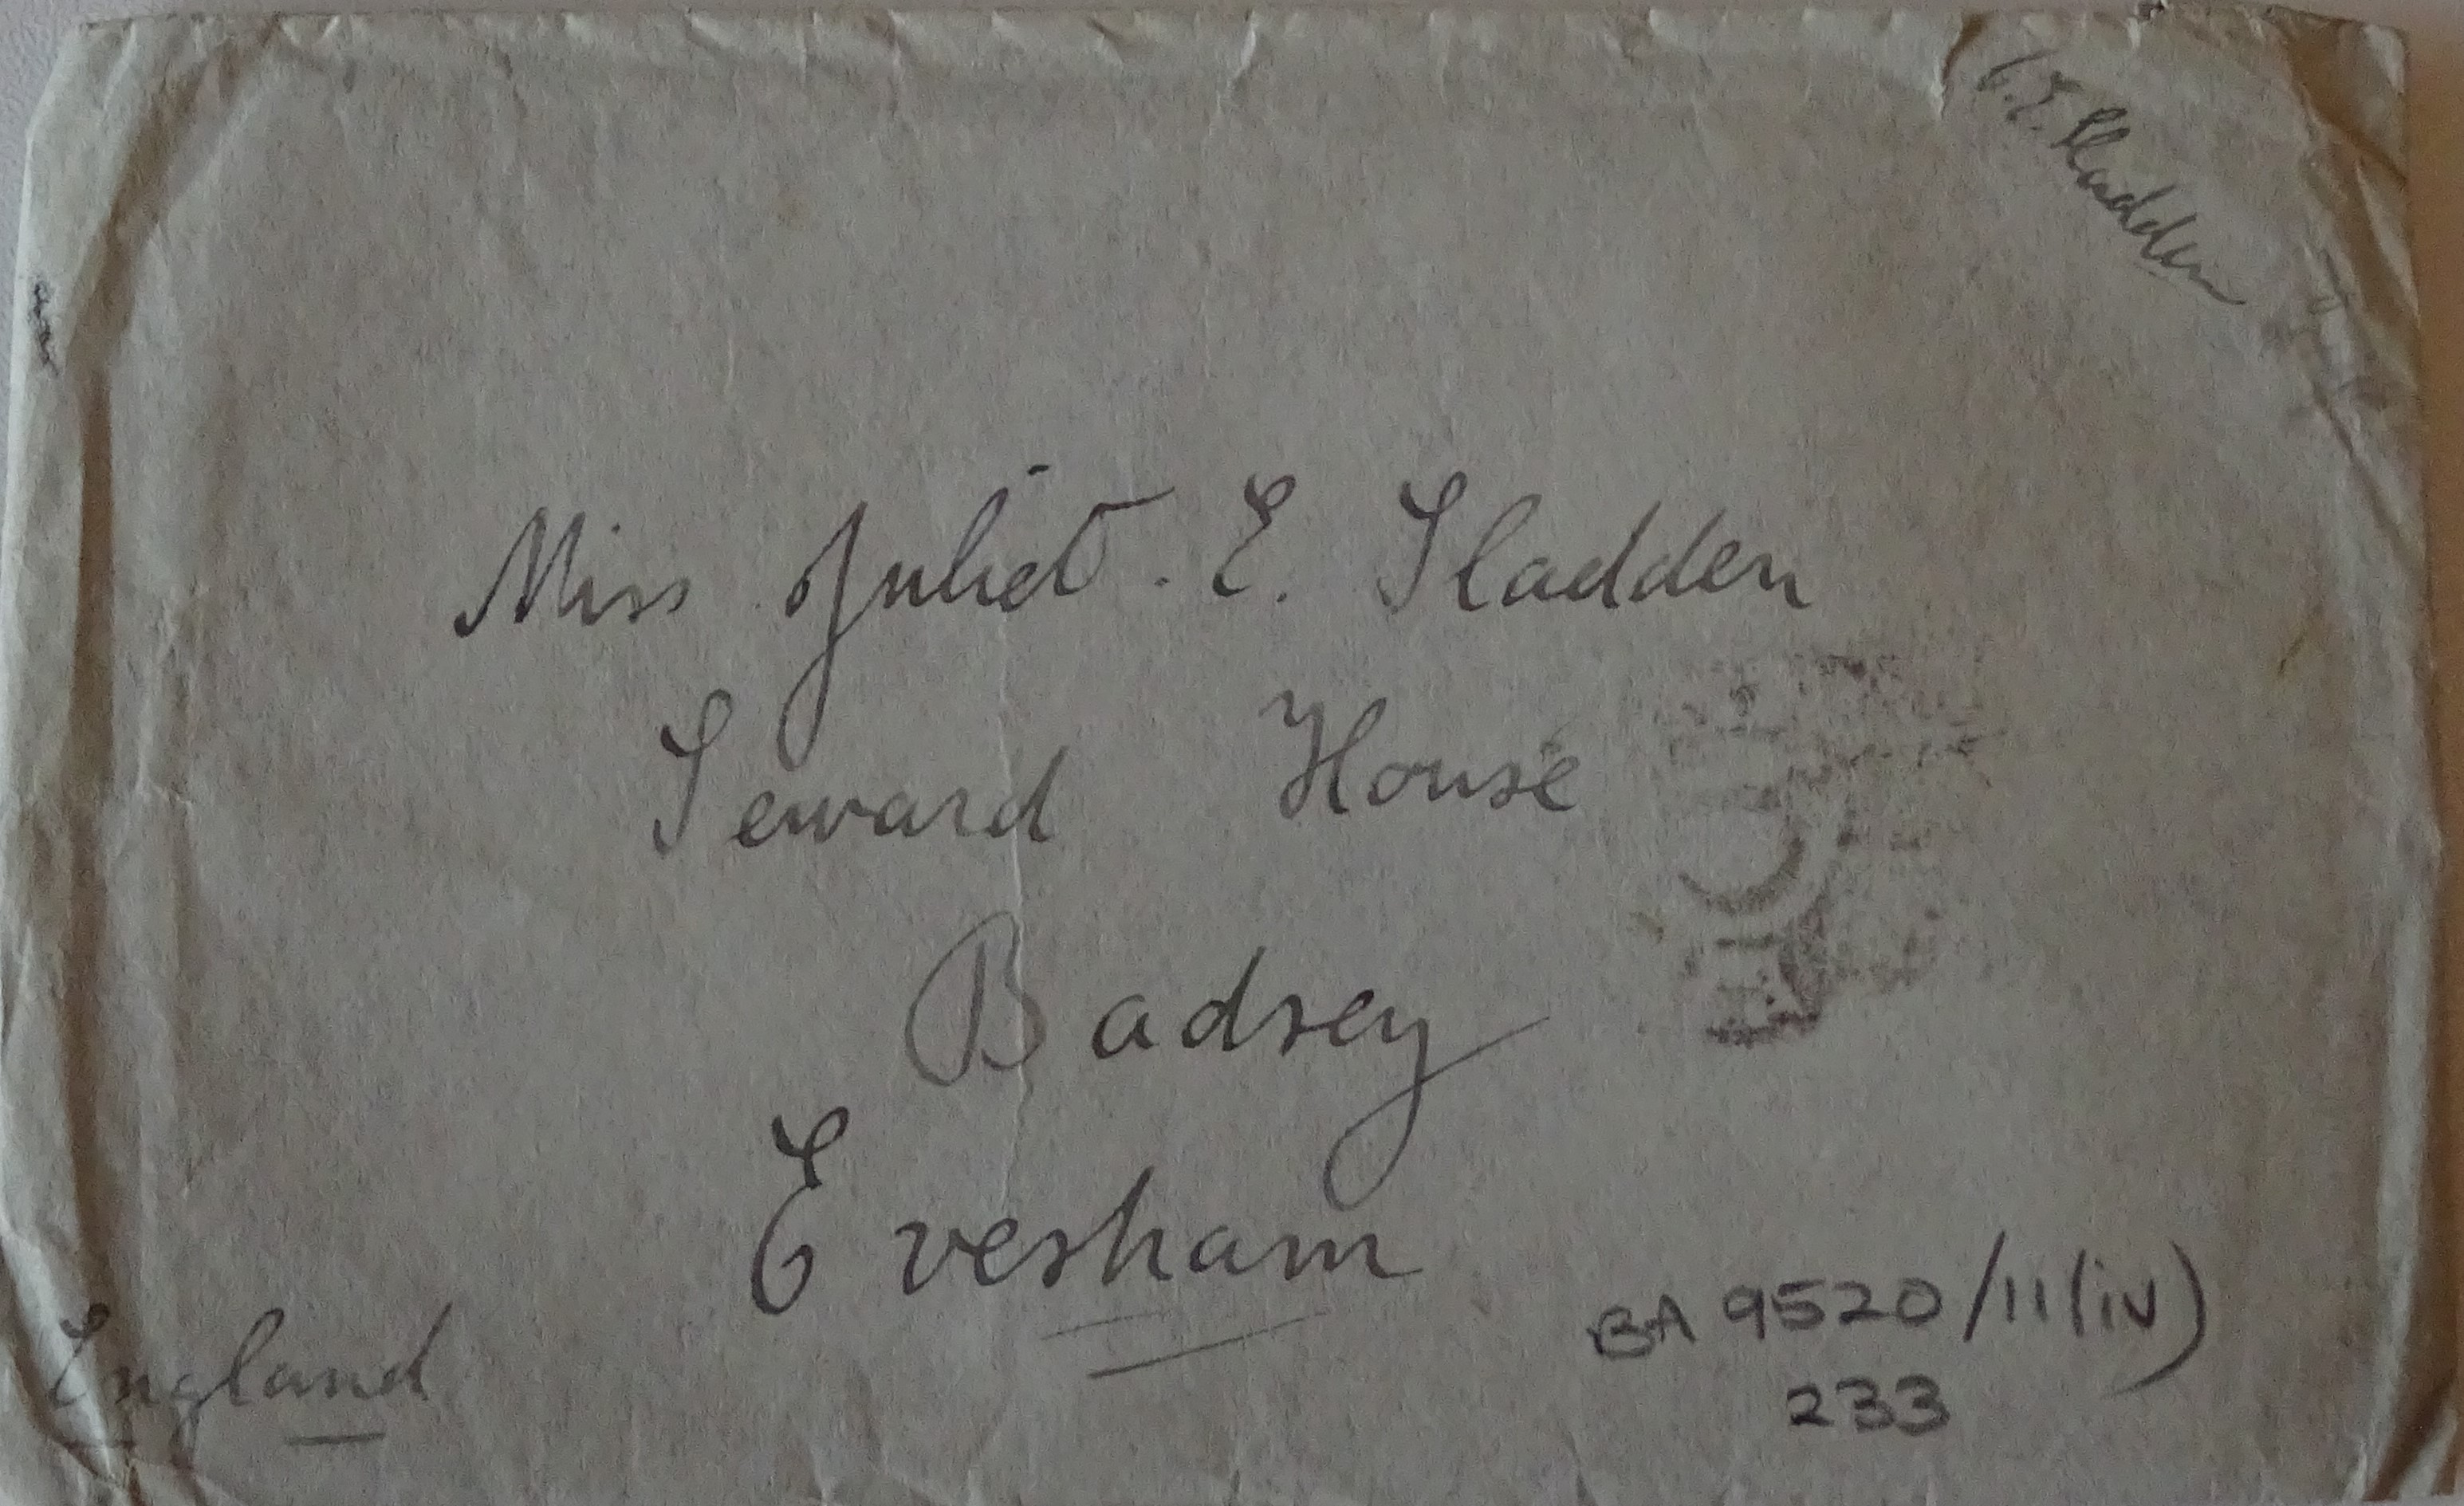 Sladden
Miss Juliet. E. Sladden
Seward House
Badsey
Evesham
England
BA 9520/11(iv)
233